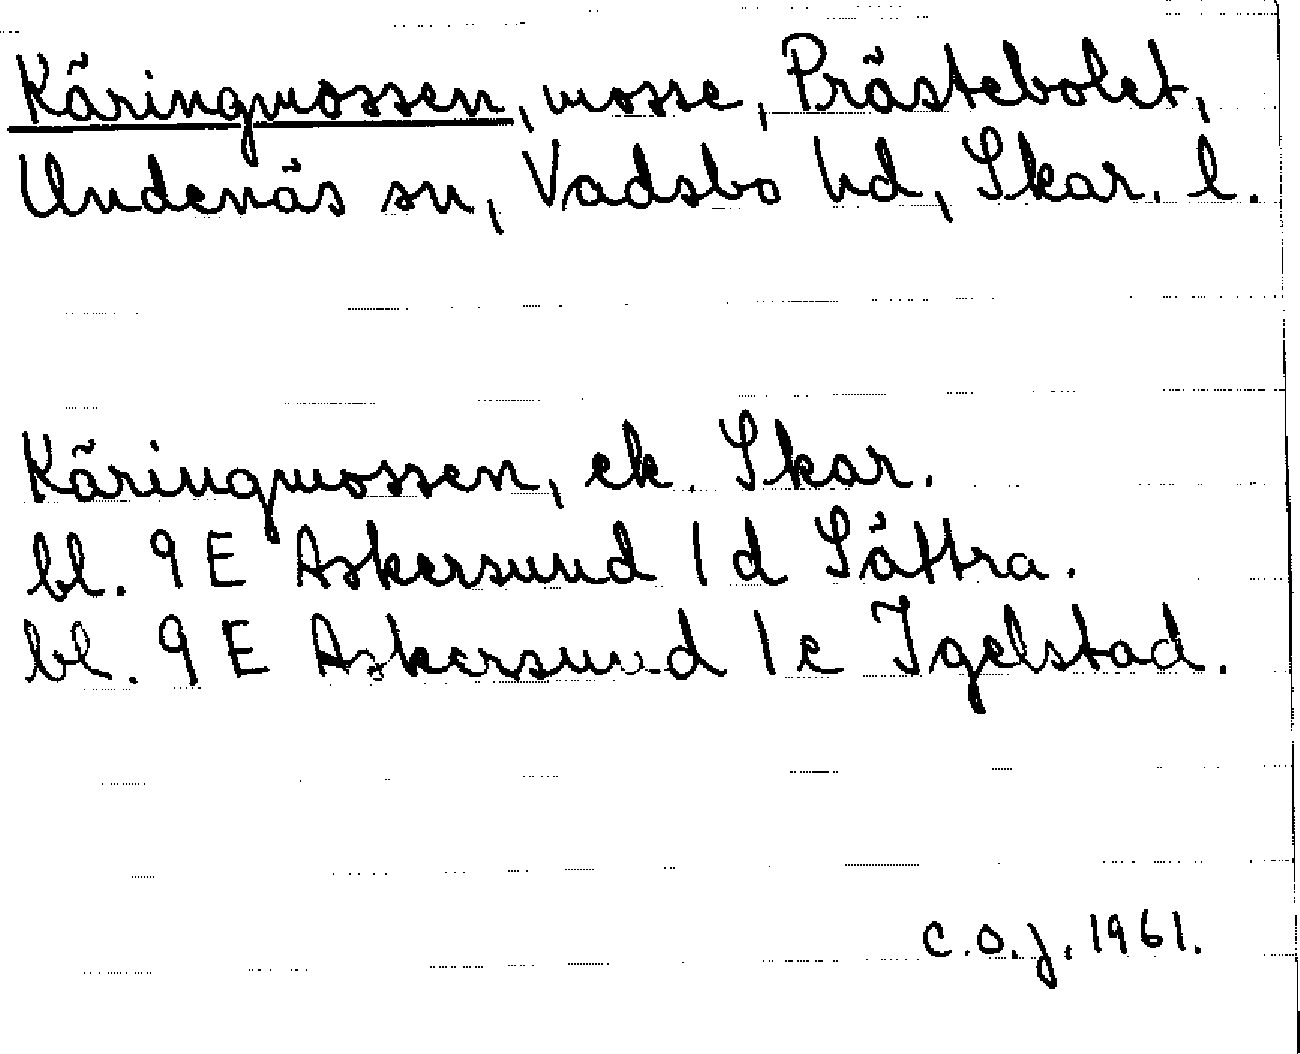 Käringmossen, mosse, Prästebolet,
Undenäs sn, Vadsbo hd, Skar. l.
Käringmossen, ek. Skar.
bl. 9 E Askersund 1 d Sättra.
bl. 9 E Askersund 1 c Igelstad.
c.o.j. 1961.